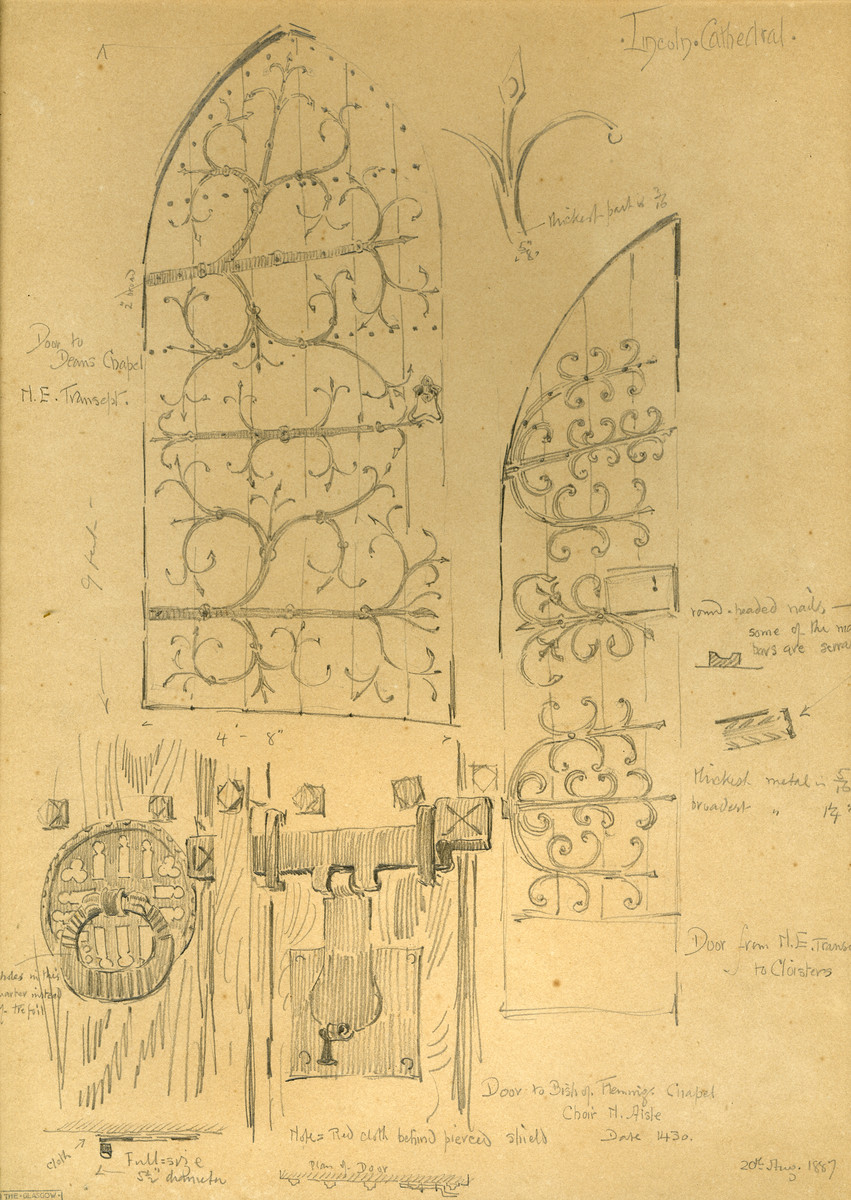 · Lincoln · Cathedral ·
thickest part is 3/16
5/8"
2" broad
Door to
Deans Chapel
N. E. Transept.
9 feet
4' - 8"
round-headed nails
some of the
bars are
thickest metal is 5/16
broadest " 1¼"
Door from N. E. Transe
to Cloisters
holes in this
quarter instead
of trefoil
Door to Bishop Flemings Chapel
Choir N. Aisle
Date 1430.
Note = Red cloth behind pierced shield
cloth
Full = size
5½" diameter
Plan of Door
20th Aug. 1887
THE · GLASGOW ·